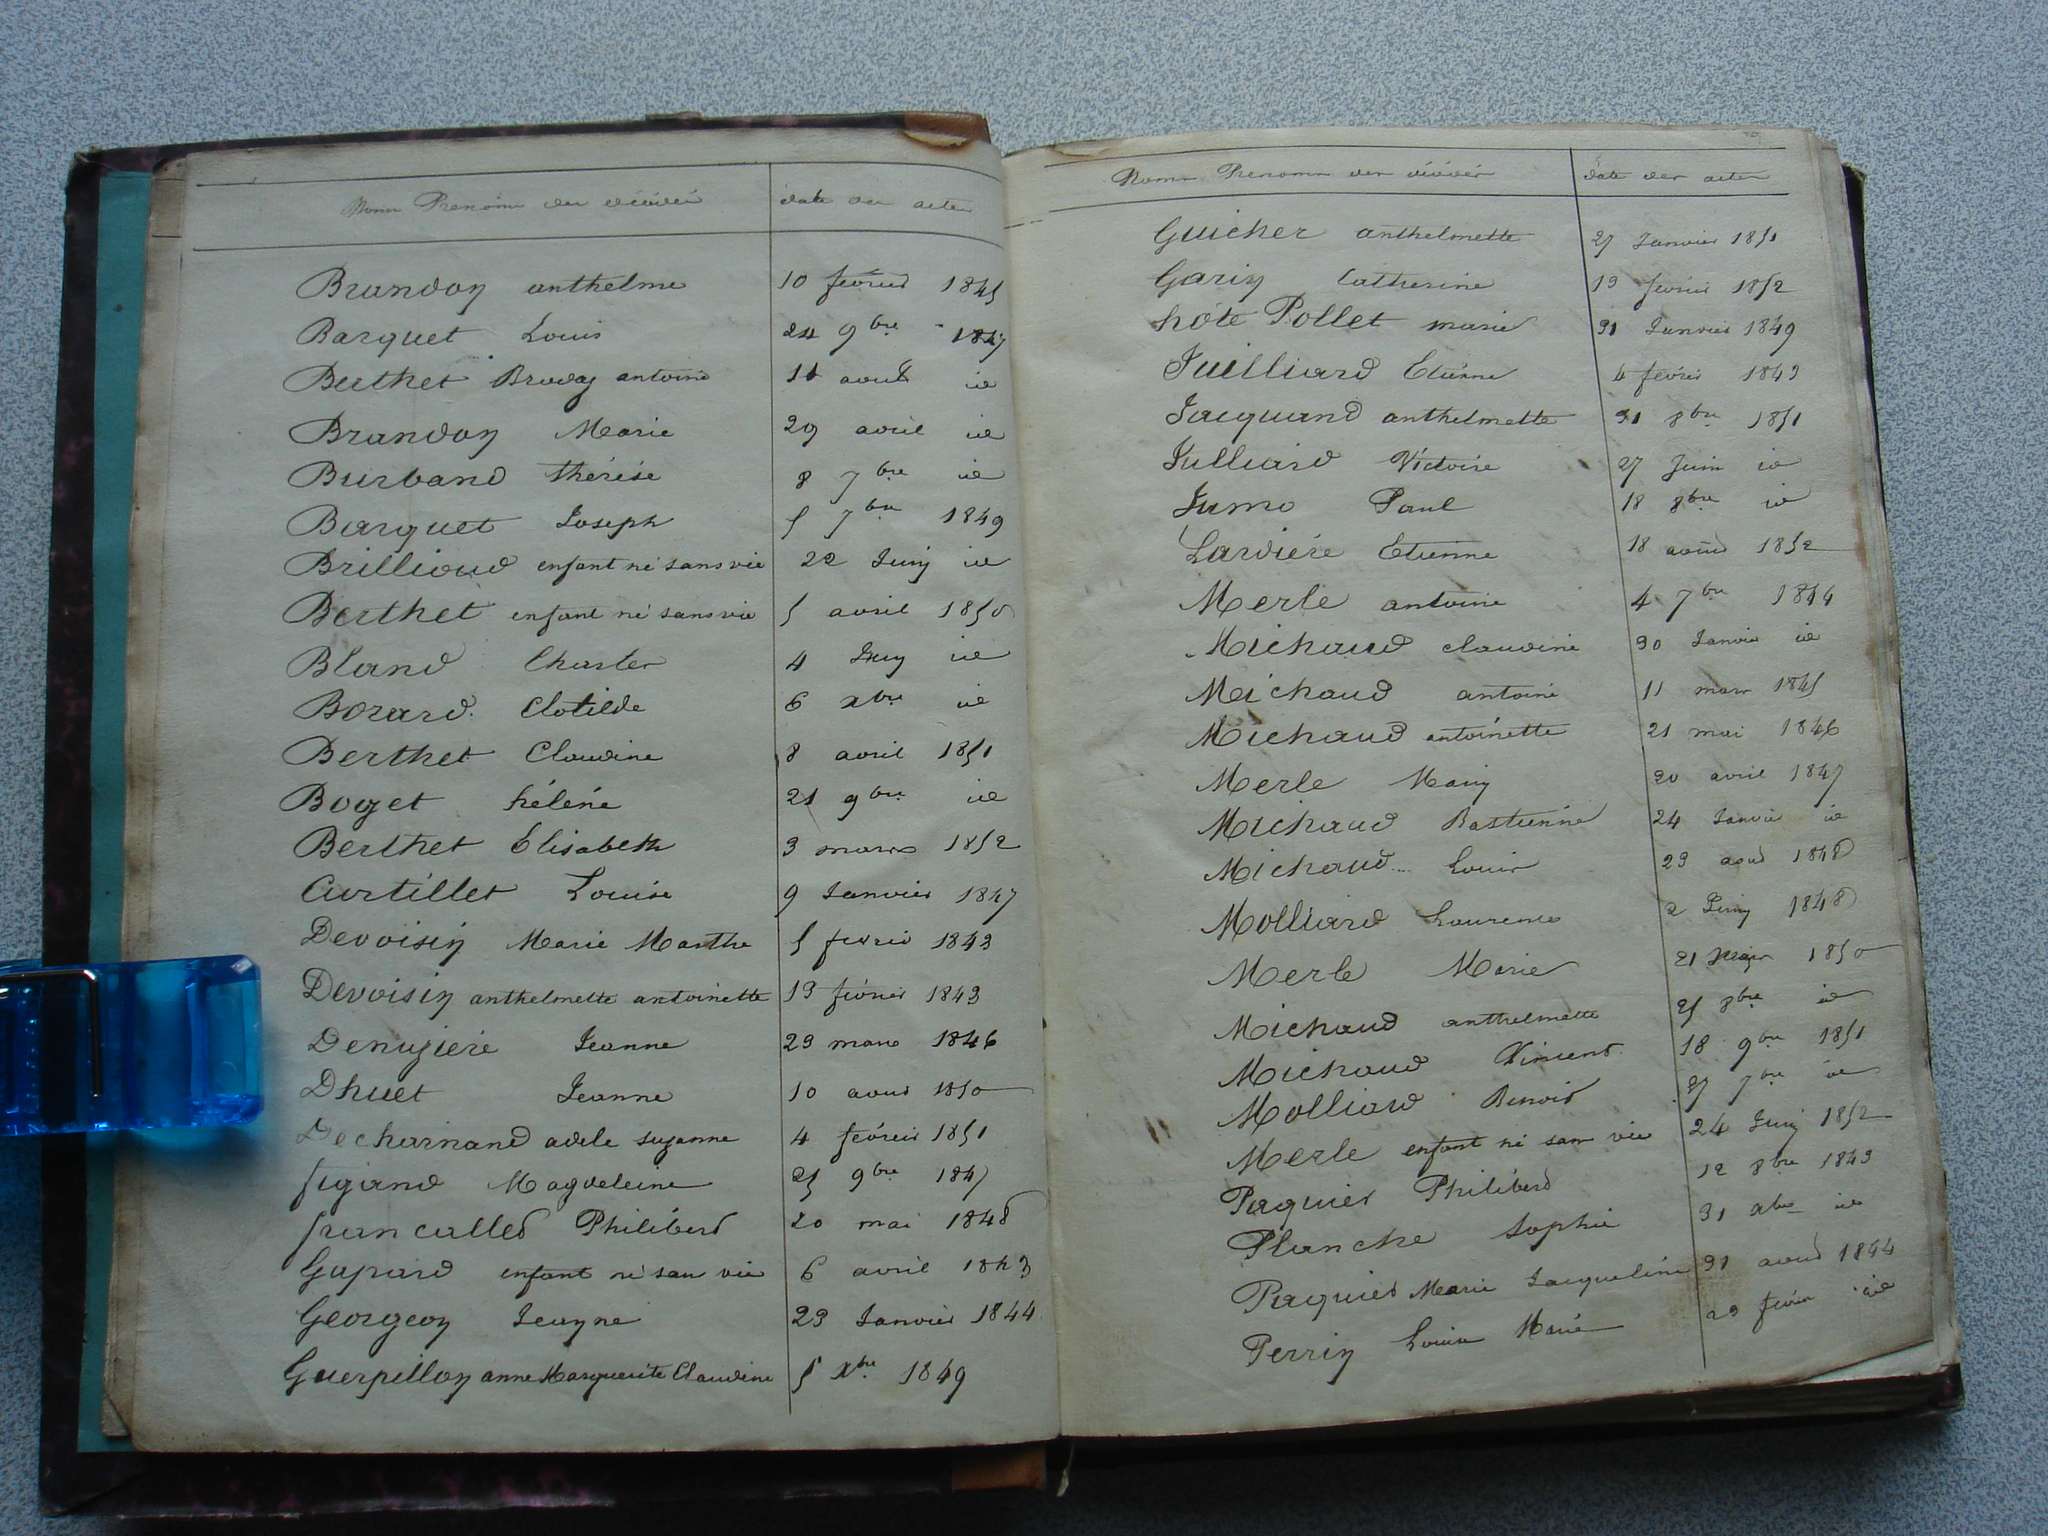 Noms Prenoms des décédés date des actes
Brandon anthelme 10 février 1845
Barquet Louis 24 9bre 1847
Berthet Broday antoine 11 aout id
Brandon Marie 29 avril id
Burband thérèse 8 7bre id
Barquet Joseph 5 7bre 1849
Brilliaud enfant né sans vie 22 Juin id
Berthet enfant né sans vie 5 avril 1850
Bland Charles 4 Juin id
Bozard Clotilde 6 xbre id
Berthet Claudine 8 avril 1851
Boget hélène 21 9bre id
Berthet Elisabeth 3 mars 1852
Curtillet Louise 9 Janvier 1847
Devoisin Marie Marthe 5 fevrier 1843
Devoisin anthelmette antoinette 13 février 1843
Denugière Jeanne 23 mars 1846
Dhuet Jeanne 10 aout 1850
Decharnand adele suzanne 4 février 1851
figand Magdeleine 25 9bre 1847
francalled Philiberd 20 mai 1848
Gapard enfant né san vie 6 avril 1843
Georgeon Jeanne 23 Janvier 1844
Guerpillon anne Marguerite Claudine 5 Xbre 1849
Noms Prenoms des décédés date des actes
Guicher anthelmette 27 Janvier 1851
Garin Catherine 13 février 1852
hôte Pollet marie 31 Janvier 1849
Juilliard Etienne 4 février 1843
Jacquand anthelmette 31 8bre 1851
Julliard Victoire 27 Juin id
Jumo Paul 18 8bre id
Lardière Etienne 18 aoud 1852
Merle antoine 4 7bre 1844
Michaud claudine 30 Janvier id
Michaud antoine 11 mars 1845
Michaud antoinette 21 mai 1846
Merle 20 avril 1847
Michaud Bastienne 24 Janvier id
Michaud Louis 23 aoud 1848
Molliard Laurence 2 Juin 1848
Merle Marie 21 1850
Michaud anthelmette 25 8bre id
Michaud Vincent 18 9bre 1851
Molliard Benoid 27 7bre id
Merle enfant né san vie 24 Juin 1852
Paquier Philiberd 12 8bre 1843
Planche Sophie 31 xbre id
Paquier Marie Jacqueline 31 aoud 1844
Perrin Louise Marie 23 février id